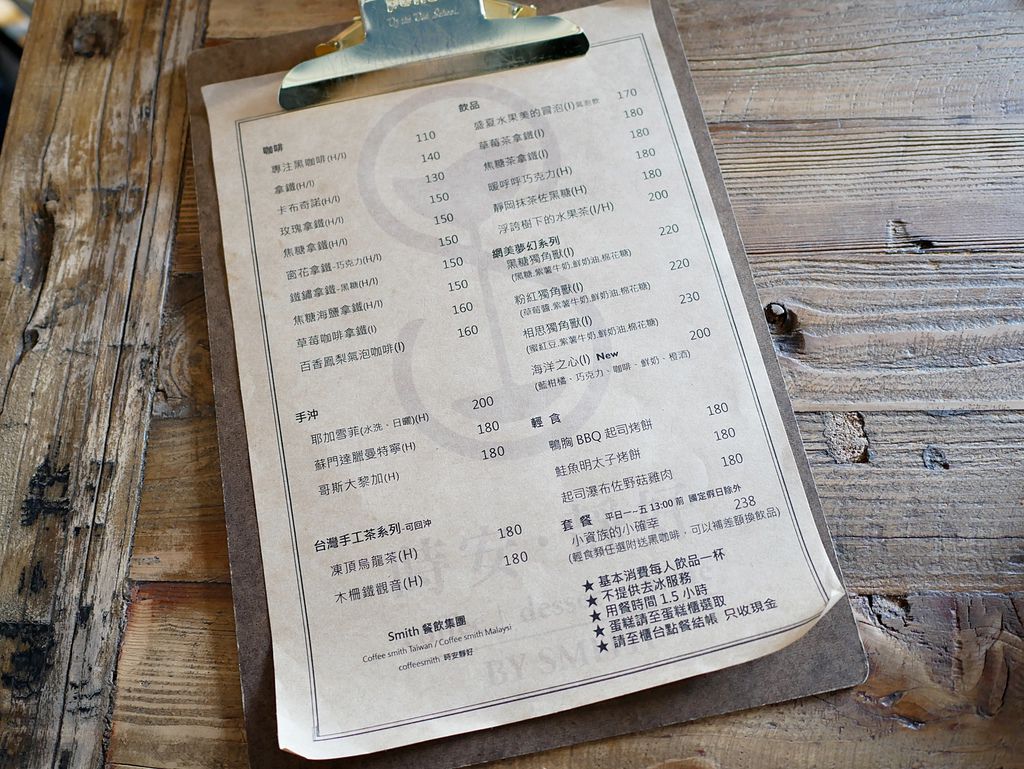 咖啡
專注黑咖啡(H/I) 110
拿鐵(H/I) 140
卡布奇諾(H/I) 130
玫瑰拿鐵(H/I) 150
焦糖拿鐵(H/I) 150
窗花拿鐵-巧克力(H/I) 150
鐵鏽拿鐵-黑糖(H/I) 150
焦糖海鹽拿鐵(H/I) 150
草莓咖啡拿鐵(I) 160
百香鳳梨氣泡咖啡(I) 160
手沖
耶加雪菲(水洗、日曬)(H) 200
蘇門達臘曼特寧(H) 180
哥斯大黎加(H) 180
台灣手工茶系列-可回沖
凍頂烏龍茶(H) 180
木柵鐵觀音(H) 180
Smith 餐飲集團
Coffee smith Taiwan / Coffee smith Malaysi
coffeesmith 時安靜好
飲品
盛夏水果美的冒泡(I)氣泡飲 170
草莓茶拿鐵(I) 180
焦糖茶拿鐵(I) 180
暖呼呼巧克力(H) 180
靜岡抹茶佐黑糖(H) 180
浮誇樹下的水果茶(I/H) 200
網美夢幻系列
黑糖獨角獸(I) 220
(黑糖.紫薯牛奶.鮮奶油.棉花糖)
粉紅獨角獸(I) 220
(草莓醬.紫薯牛奶.鮮奶油.棉花糖)
相思獨角獸(I) 230
(蜜紅豆.紫薯牛奶.鮮奶油.棉花糖)
海洋之心(I) New 200
(藍柑橘、巧克力、咖啡、鮮奶、橙酒)
輕 食
鴨胸 BBQ 起司烤餅 180
鮭魚明太子烤餅 180
起司瀑布佐野菇雞肉 180
套 餐 平日一~五 13:00 前 國定假日除外
小資族的小確幸 238
(輕食類任選附送黑咖啡，可以補差額換飲品)
★ 基本消費每人飲品一杯
★ 不提供去冰服務
★ 用餐時間 1.5 小時
★ 蛋糕請至蛋糕櫃選取
★ 請至櫃台點餐結帳 只收現金